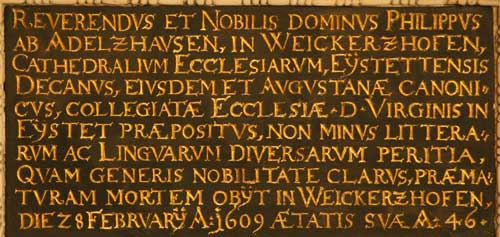 REVERENDVS ET NOBILIS DOMINVS PHILIPPVS
AB ADELZHAVSEN, IN WEICKERZHOFEN,
CATHEDRALIVM ECCLESIARVM, EŸSTETTENSIS
DECANVS, EIVSDEM ET AVGVSTANÆ CANONI-
CVS, COLLEGIATÆ ECCLESIÆ · D · VIRGINIS IN
EŸSTET PRÆPOSITVS, NON MINVS LITTERA-
RVM AC LINGVARVM DIVERSARVM PERITIA,
QVAM GENERIS NOBILITATE CLARVS, PRÆMA-
TVRAM MORTEM OBŸT IN WEICKERZHOFEN,
DIE 28 FEBRVARŸ A: 1609 ÆTATIS SVÆ A: 46 ·